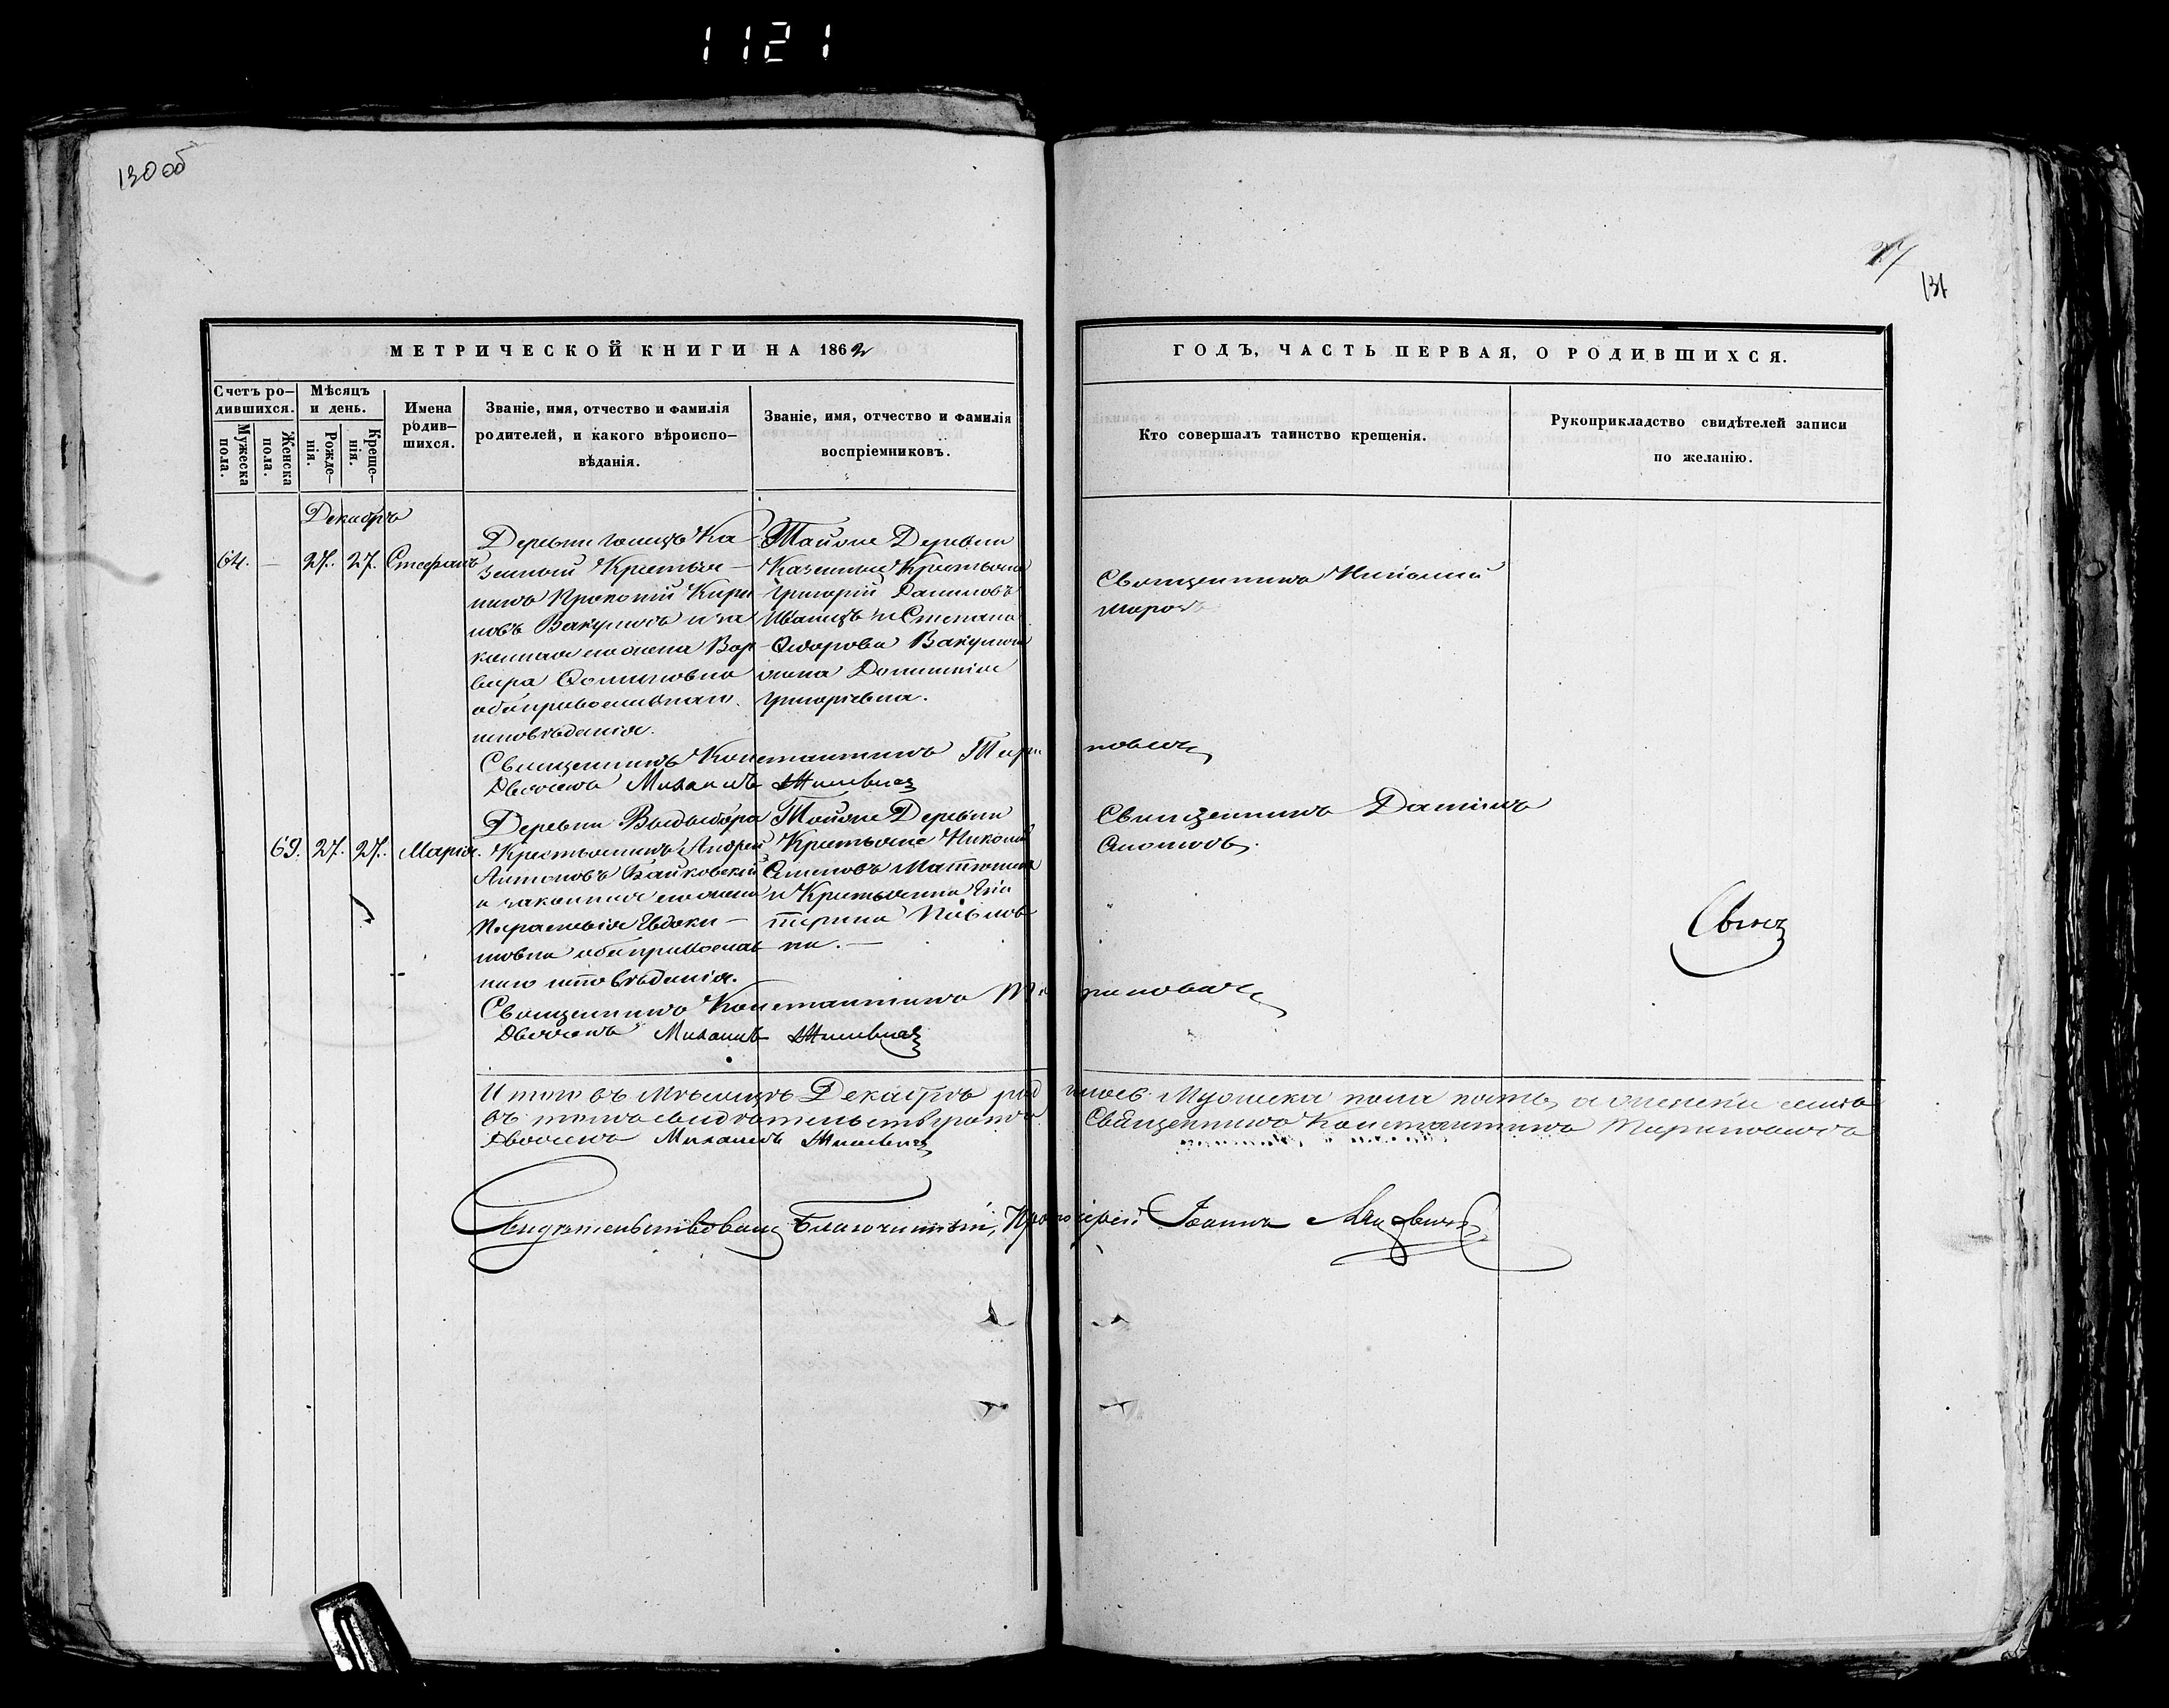 1121
130 об
131
МЕТРИЧЕСКОЙ КНИГИ НА 1862
ГОДЪ, ЧАСТЬ ПЕРВАЯ, О РОДИВШИХСЯ.
Счетъ ро-
дившихся.
Мужеска
пола.
Женска
пола.
Мѣсяцъ
и день.
Рожде-
нія.
Креще-
нія.
Имена
родив-
шихся.
Званіе, имя, отчество и фамилія
родителей, и какого вѣроиспо-
вѣданія.
Званіе, имя, отчество и фамилія
воспріемниковъ.
Кто совершалъ таинство крещенія.
Рукоприкладство свидѣтелей записи
по желанію.
Декабрь
64. — 27. 27. Стефанъ
Деревни Ка-
зенный Крестья-
нинъ Прокопій Кири-
ловъ Вакуличъ и за
конная его жена Вар-
вара
оба православнаго
исповѣданія.
Тойже Деревни
Казенные Крестьяне
Григорій Даниловъ
Иванецъ и Степана
Ѳедорова Вакулича
жена Домникія
Григорьевна.
Священникъ Николай
Мороз
Священникъ Константинъ Тариновичъ
Дьячекъ Михаилъ Жилевичъ
69. 27. 27. Марія.
Деревни
Крестьянинъ Андрей
Антоновъ Байковскій
и законная его жена
Парасковія Евдоки-
мовна оба православ
наго исповѣданія.
Тойже Деревни
Крестьяне Николай
Семеновъ
и Крестьянка Ека
терина Павлов
на. —
Священникъ Даніилъ
Священникъ Константинъ Тариновичъ
Дьячекъ Михаилъ Жилевичъ
Итого въ Мѣсяцѣ Декабрѣ родилось Мужеска пола пять, а женска семь
въ томъ свидѣтельствуютъ Священникъ Константинъ Тариновичъ
Дьячекъ Михаилъ Жилевичъ
Свидѣтельствовалъ Благочинный, Протоіерей Іоаннъ